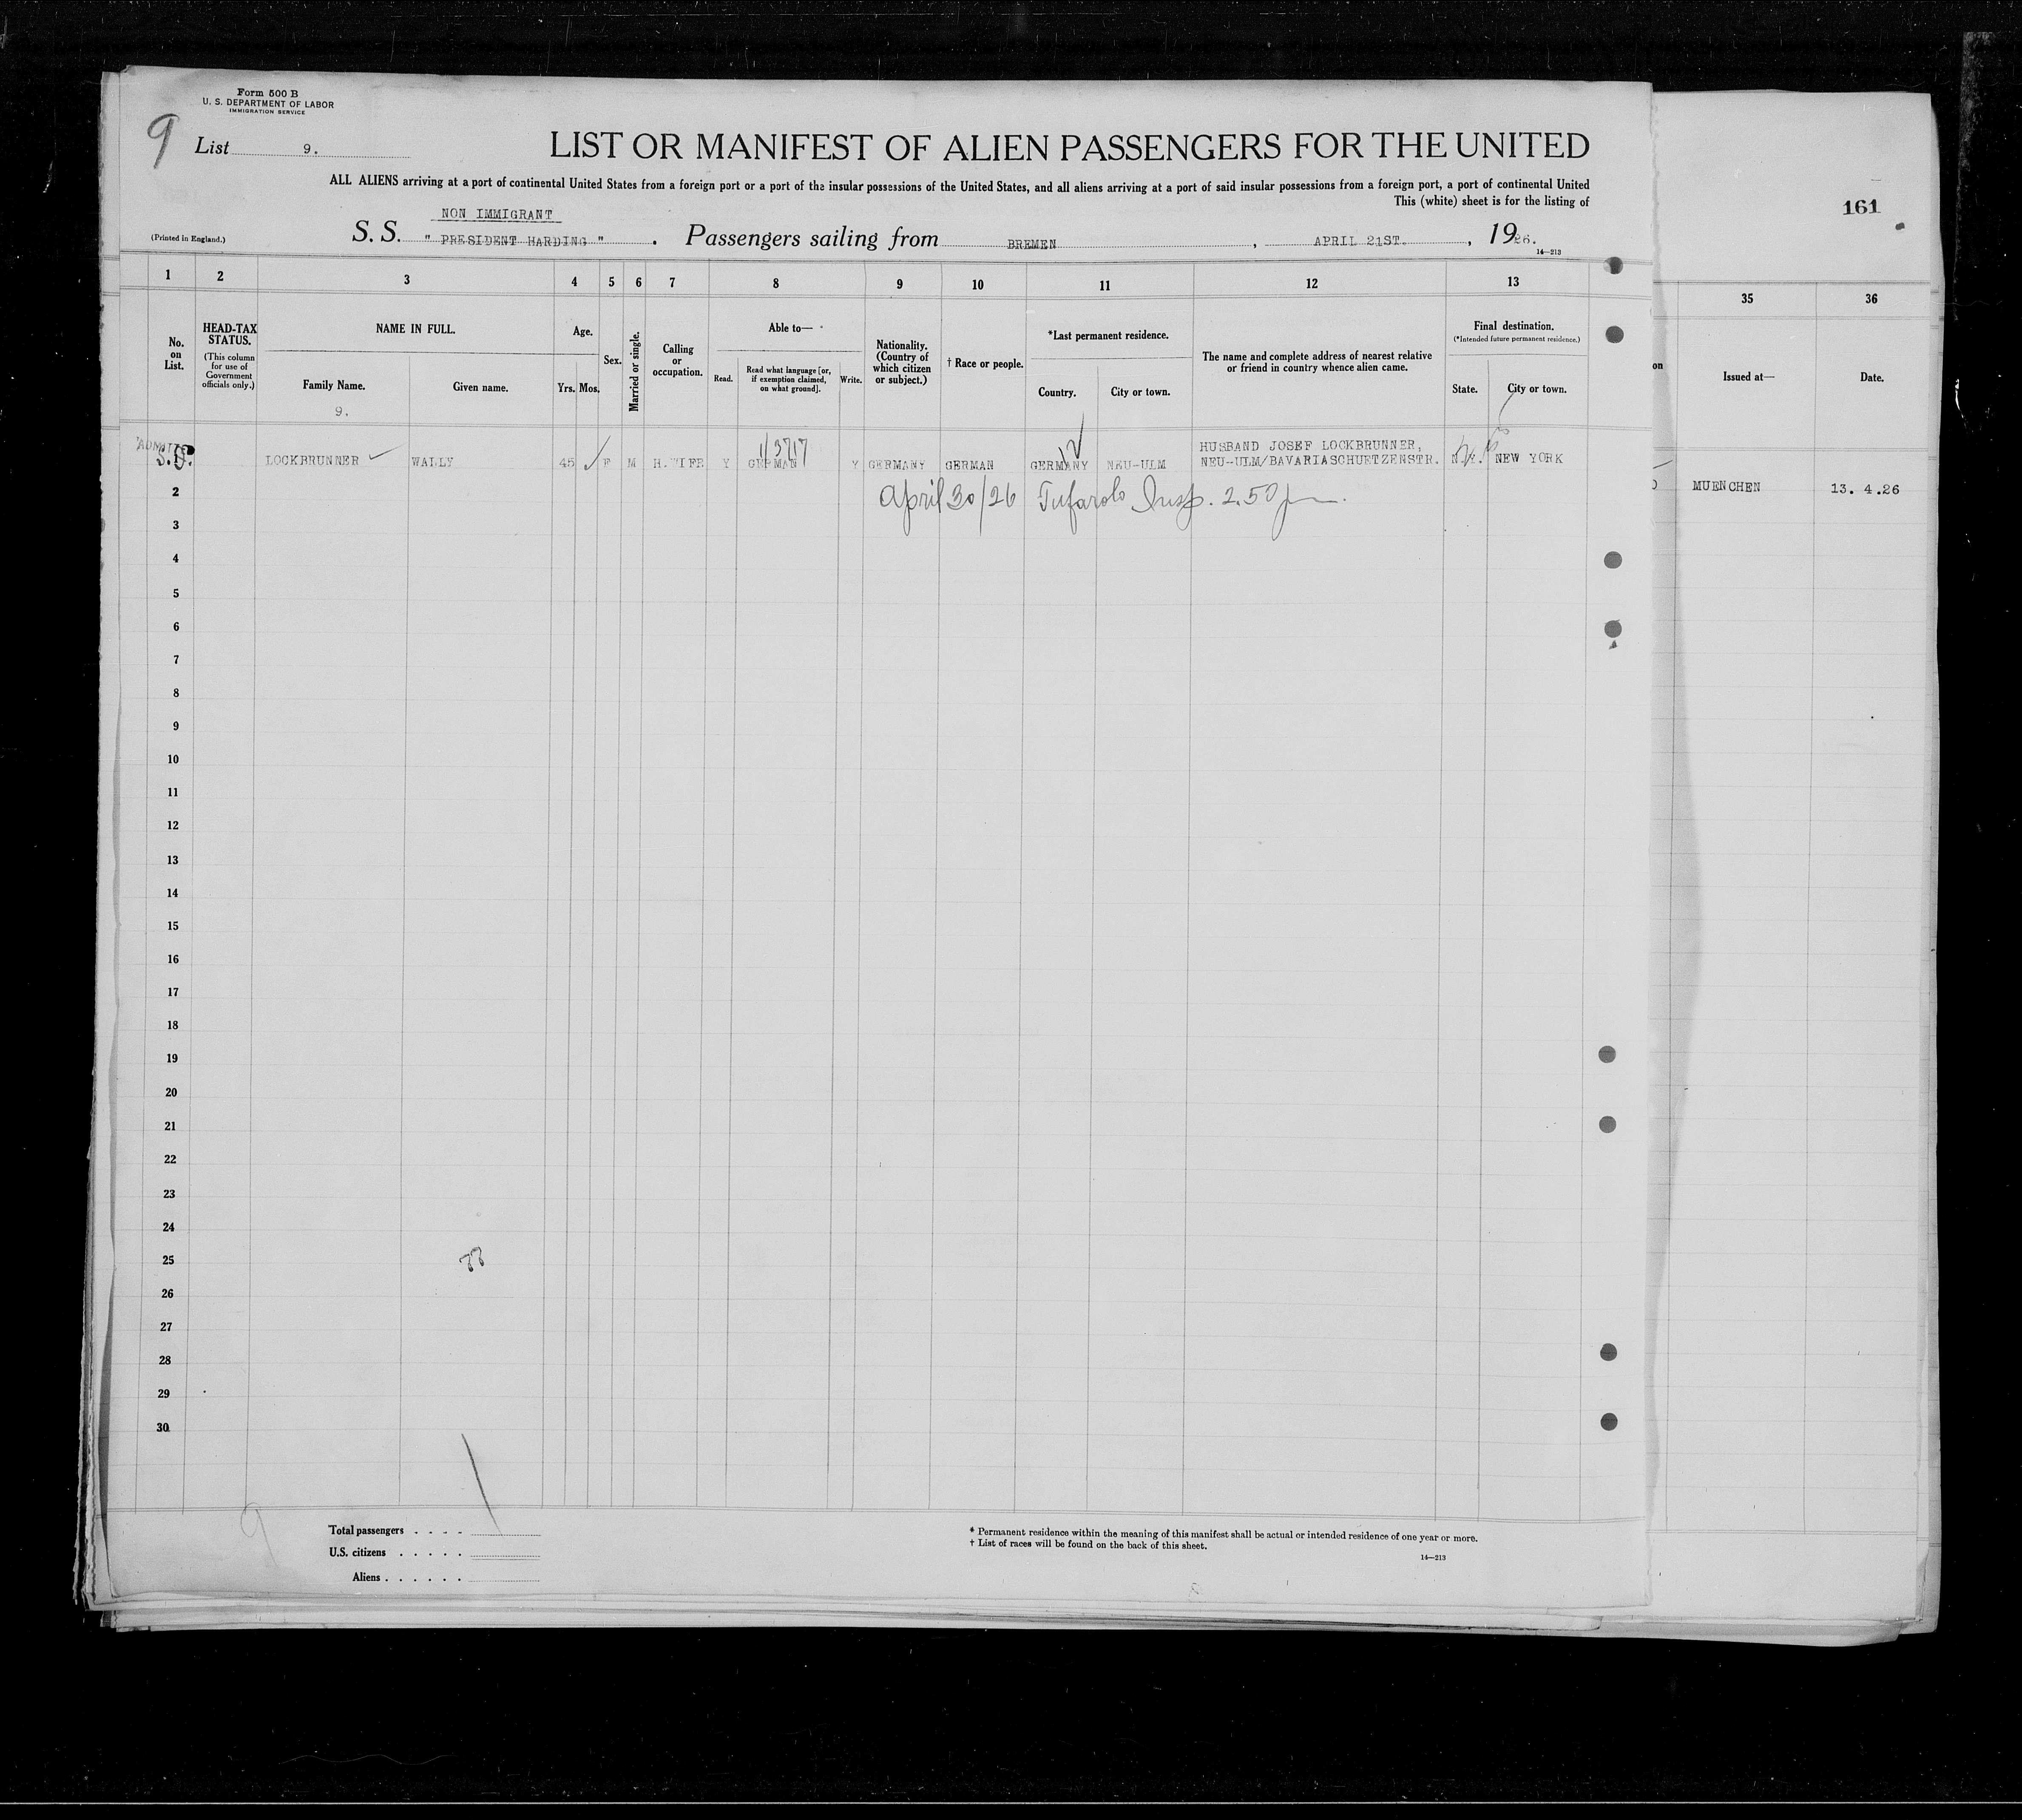 Form 500 B
U. S. DEPARTMENT OF LABOR
IMMIGRATION SERVICE
9
List 9.
LIST OR MANIFEST OF ALIEN PASSENGERS FOR THE UNITED
ALL ALIENS arriving at a port of continental United States from a foreign port or a port of the insular possessions of the United States, and all aliens arriving at a port of said insular possessions from a foreign port, a port of continental United
This (white) sheet is for the listing of
161
NON IMMIGRANT
(Printed in England.) S. S. " PRESIDENT HARDING " . Passengers sailing from BREMEN , APRIL 21ST. , 1926.
14—213
1 2 3 4 5 6 7 8 9 10 11 12 13 35 36
No. on List.
HEAD-TAX STATUS.
(This column for use of Government officials only.)
NAME IN FULL.
Family Name. Given name.
9.
Age.
Yrs. Mos.
Sex.
Married or single.
Calling or occupation.
Able to—
Read.
Read what language [or, if exemption claimed, on what ground].
Write.
Nationality. (Country of which citizen or subject.)
† Race or people.
*Last permanent residence.
Country. City or town.
The name and complete address of nearest relative or friend in country whence alien came.
Final destination.
(*Intended future permanent residence.)
State. City or town.
on
Issued at— Date.
HUSBAND JOSEF LOCKBRUNNER,
LOCKBRUNNER WALLY 45 F M H.WIFE Y GERMAN Y GERMANY GERMAN GERMANY NEU-ULM NEU-ULM/BAVARIASCHUETZENSTR. N.Y. NEW YORK
MUENCHEN 13. 4.26
2 April 30/26 Tufarolo Insp. 2.50 pm.
3
4
5
6
7
8
9
10
11
12
13
14
15
16
17
18
19
20
21
22
23
24
25
26
27
28
29
30
9
Total passengers . . . .
U.S. citizens . . . . .
Aliens . . . . . .
* Permanent residence within the meaning of this manifest shall be actual or intended residence of one year or more.
† List of races will be found on the back of this sheet.
14—213